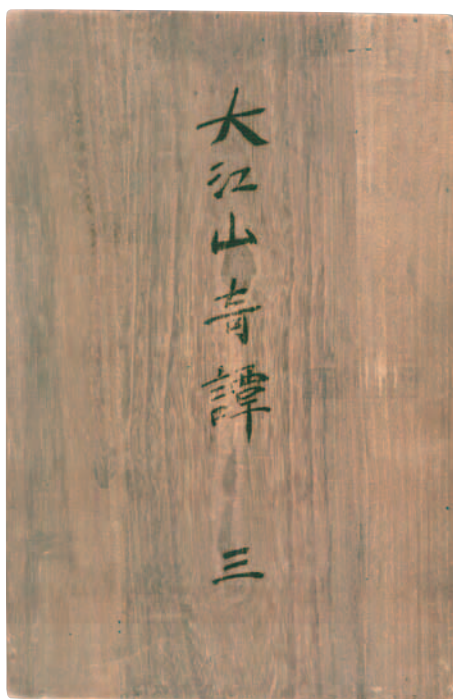 大江山奇譚 三